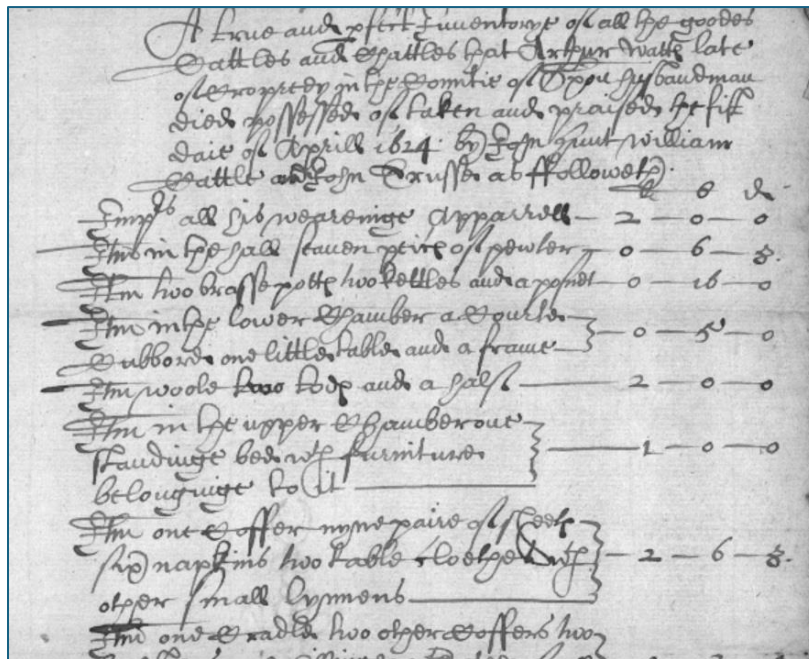 A true and pfect Inventorye of all the goodes
Cattles and Chattles that Arthur Watts late
of Cropredy in the Countie of Oxon husbandman
died possessed of taken and praised the fift
daie of Aprill 1624 by John Hunt William
Cattle and John Trusse as ffolloweth
li s d
Impris all his wearinge Apparrell - 2 - 0 - 0
Itm in the hall seaven peices of pewter - 0 - 6 - 8
Itm two brasse potts two kettles and a posnet - 0 - 16 - 0
Itm in the lower Chamber a Courte
Cubborde one little table and a frame - 0 - 5 - 0
Itm woole two tods and a half - 2 - 0 - 0
Itm in the upper Chamber one
standinge bed wth furniture
belonginge to it - 1 - 0 - 0
Itm one Coffer nyne paire of sheets
six napkins two table cloethes wth
other small lynnens - 2 - 6 - 8
Itm one Cradle two other Coffers two